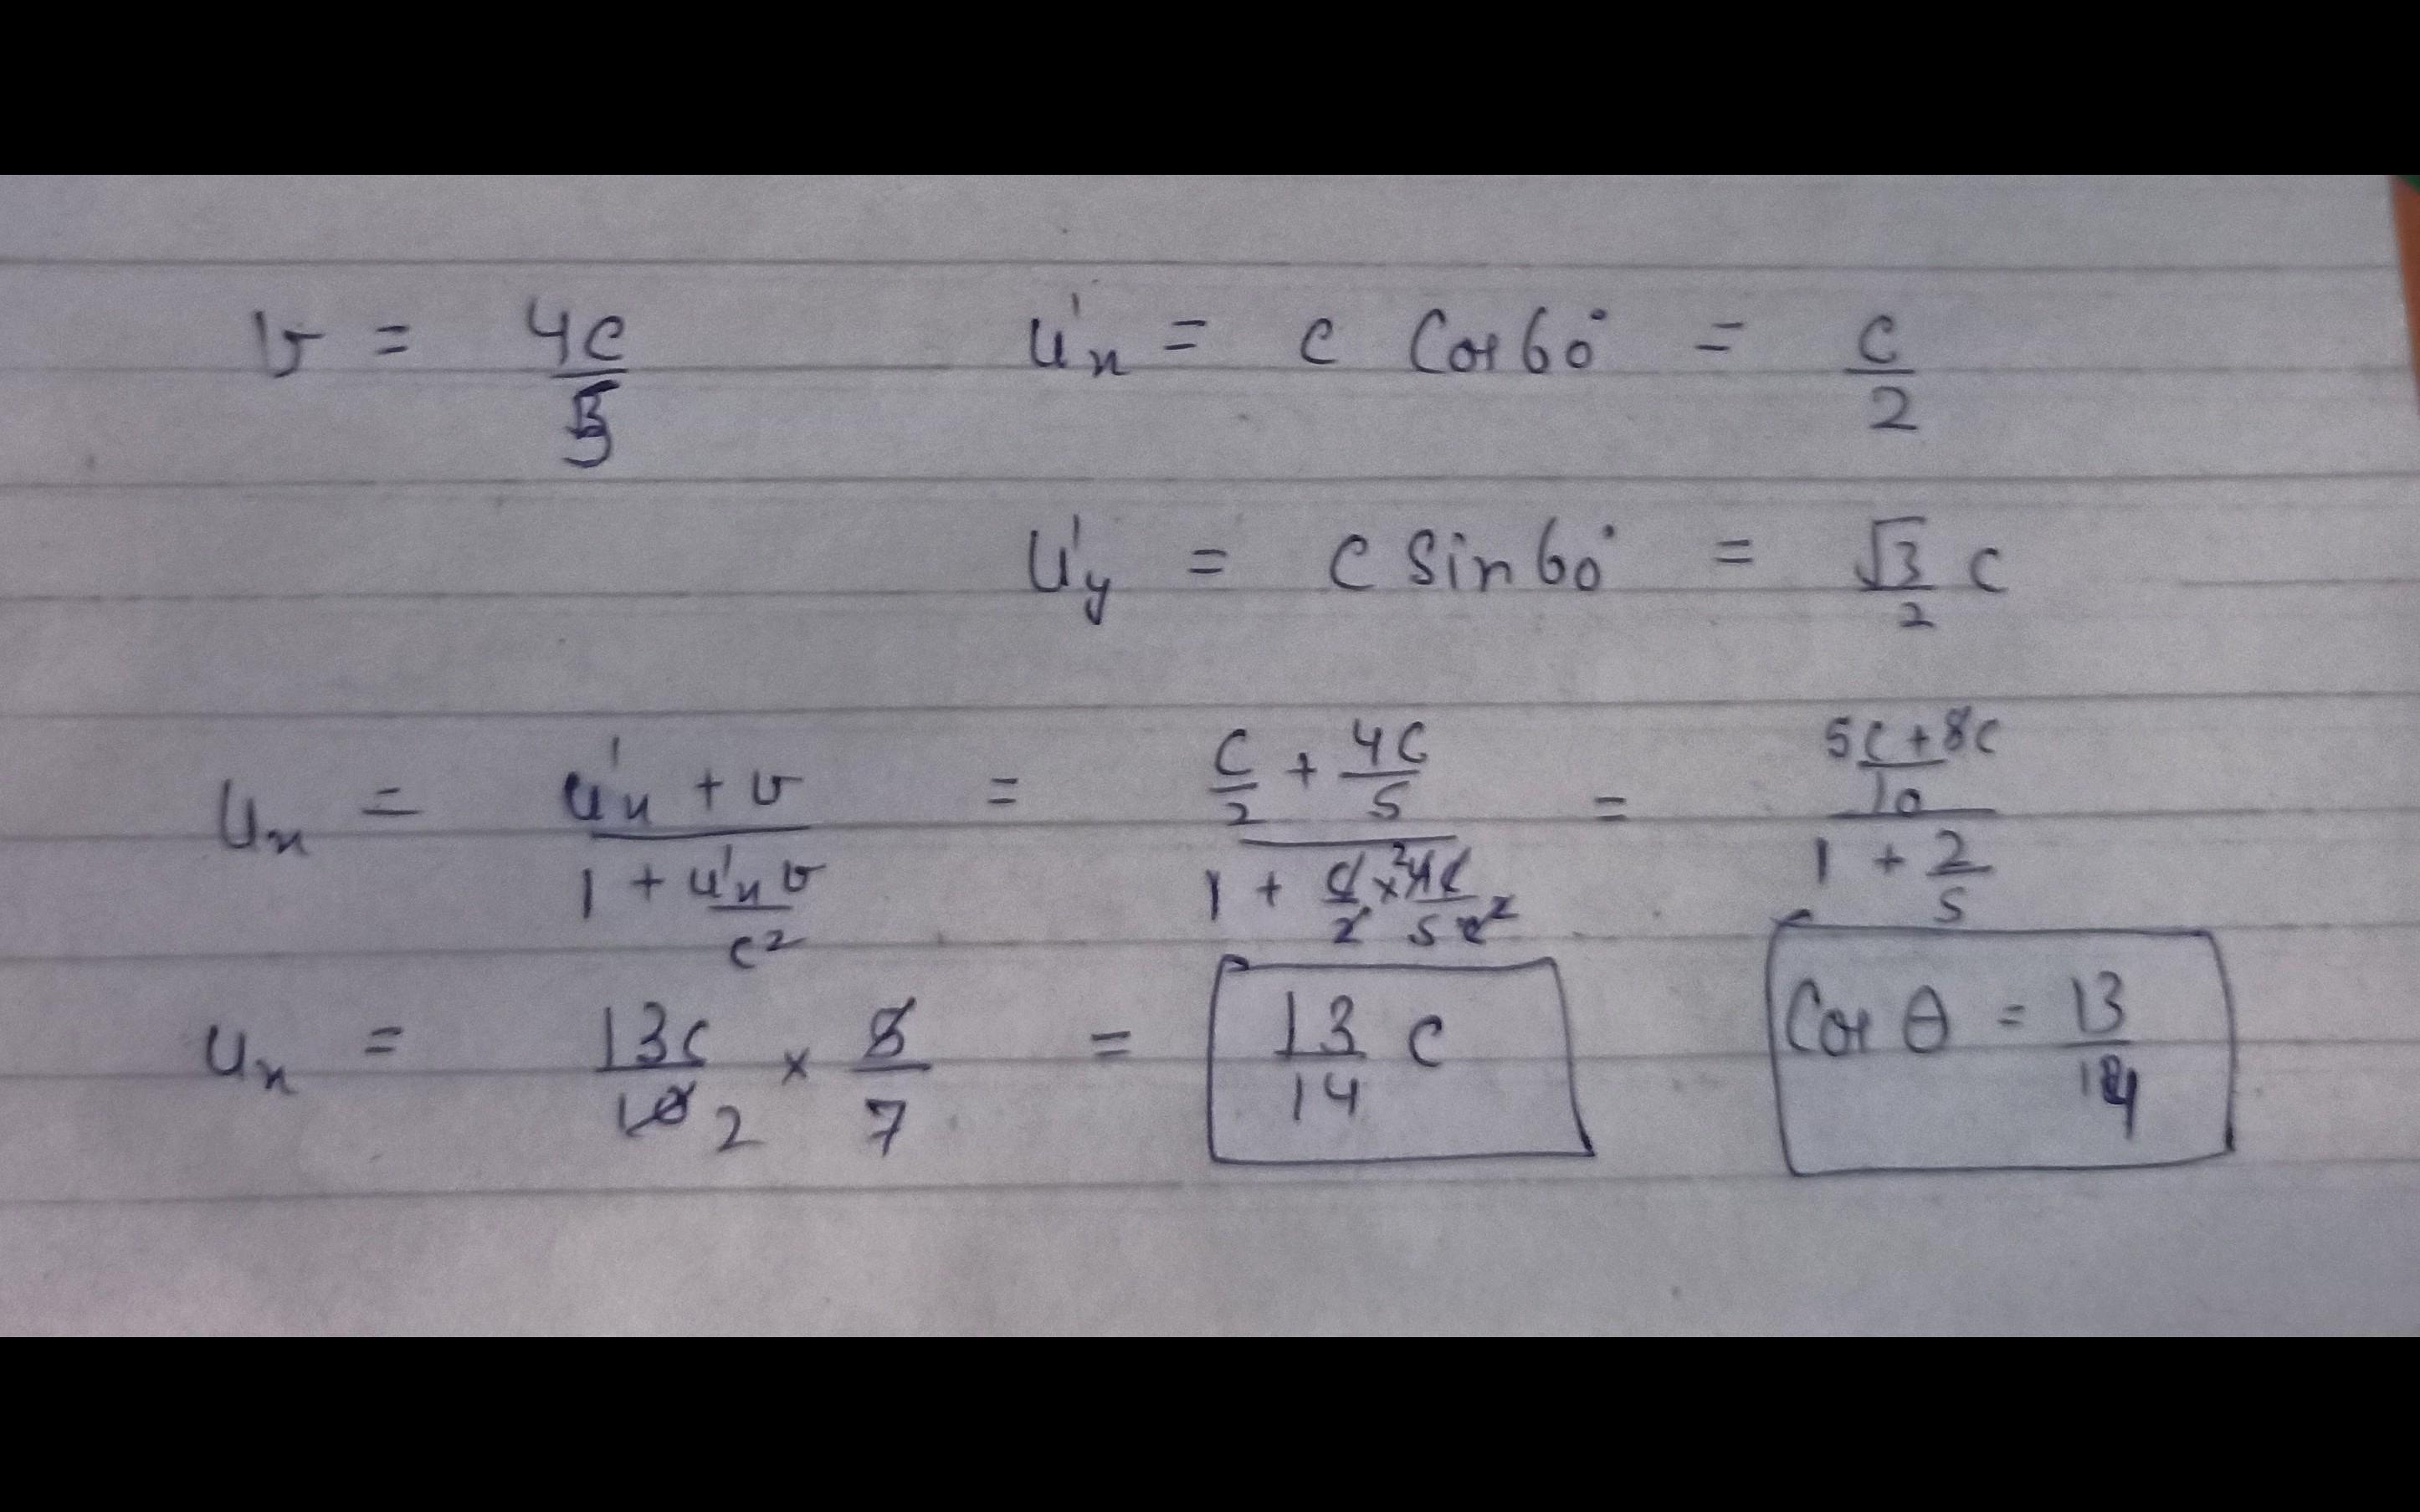 v = 4c/5    u'x = c Cos 60° = c/2
u'y = c Sin 60° = √3/2 c
ux = (u'x + v)/(1 + u'x v/c²) = (c/2 + 4c/5)/(1 + c/2 × 4c/5c²) = ((5c + 8c)/10)/(1 + 2/5)
ux = 13c/10 2 × 5/7 = 13/14 c    Cos θ = 13/14